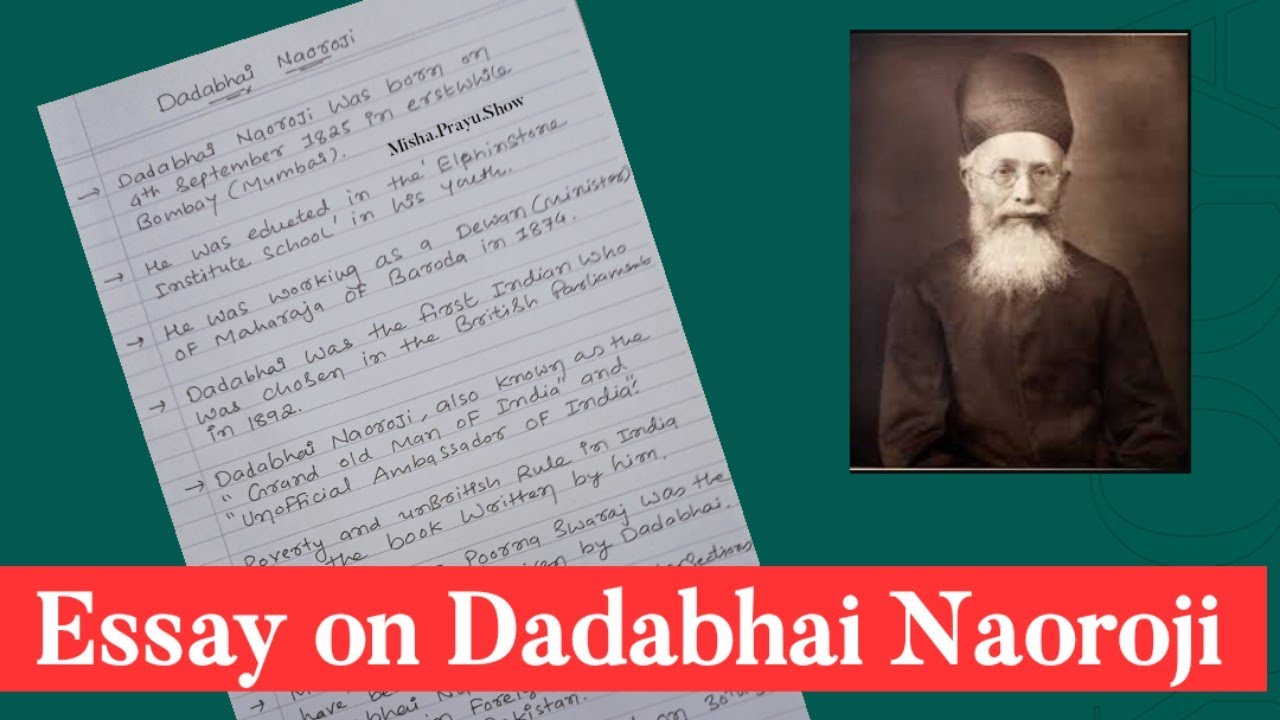 Dadabhai Naoroji
→ Dadabhai Naoroji was born on
4th September 1825 in erstwhile
Bombay (Mumbai).
Misha.Prayu.Show
→ He was edueted in the 'Elphinstone
Institute School' in his youth.
→ He was working as a Dewan (Minister)
of Maharaja of Baroda in 1874.
→ Dadabhai was the first Indian who
was chosen in the British Parliament
in 1892.
→ Dadabhai Naoroji, also known as the
"Grand old Man of India" and
"Unofficial Ambassador of India".
Poverty and unBritish Rule in India
the book written by him.
Poorna Swaraj was the
by Dadabhai.
Essay on Dadabhai Naoroji
→
have
in
on